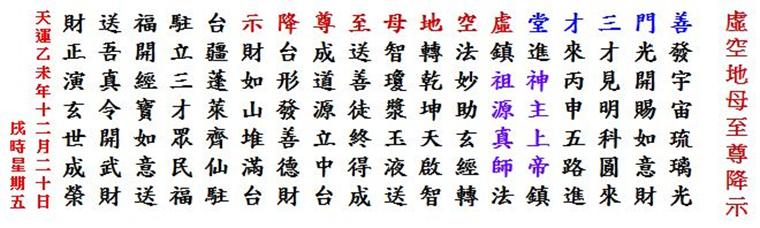 虛空地母至尊降示
善發宇宙琉璃光
門光開賜如意財
三才見明科圓來
才來丙申五路進
堂進神主上帝鎮
虛鎮祖源真師法
空法妙助玄經轉
地轉乾坤天啟智
母智瓊漿玉液送
至送善徒終得成
尊成道源立中台
降台形發善德財
示財如山堆滿台
台疆蓬萊齊仙駐
駐立三才眾民福
福開經寶如意送
送吾真令開武財
財正演玄世成榮
天運乙未年十二月二十日
戌時星期五